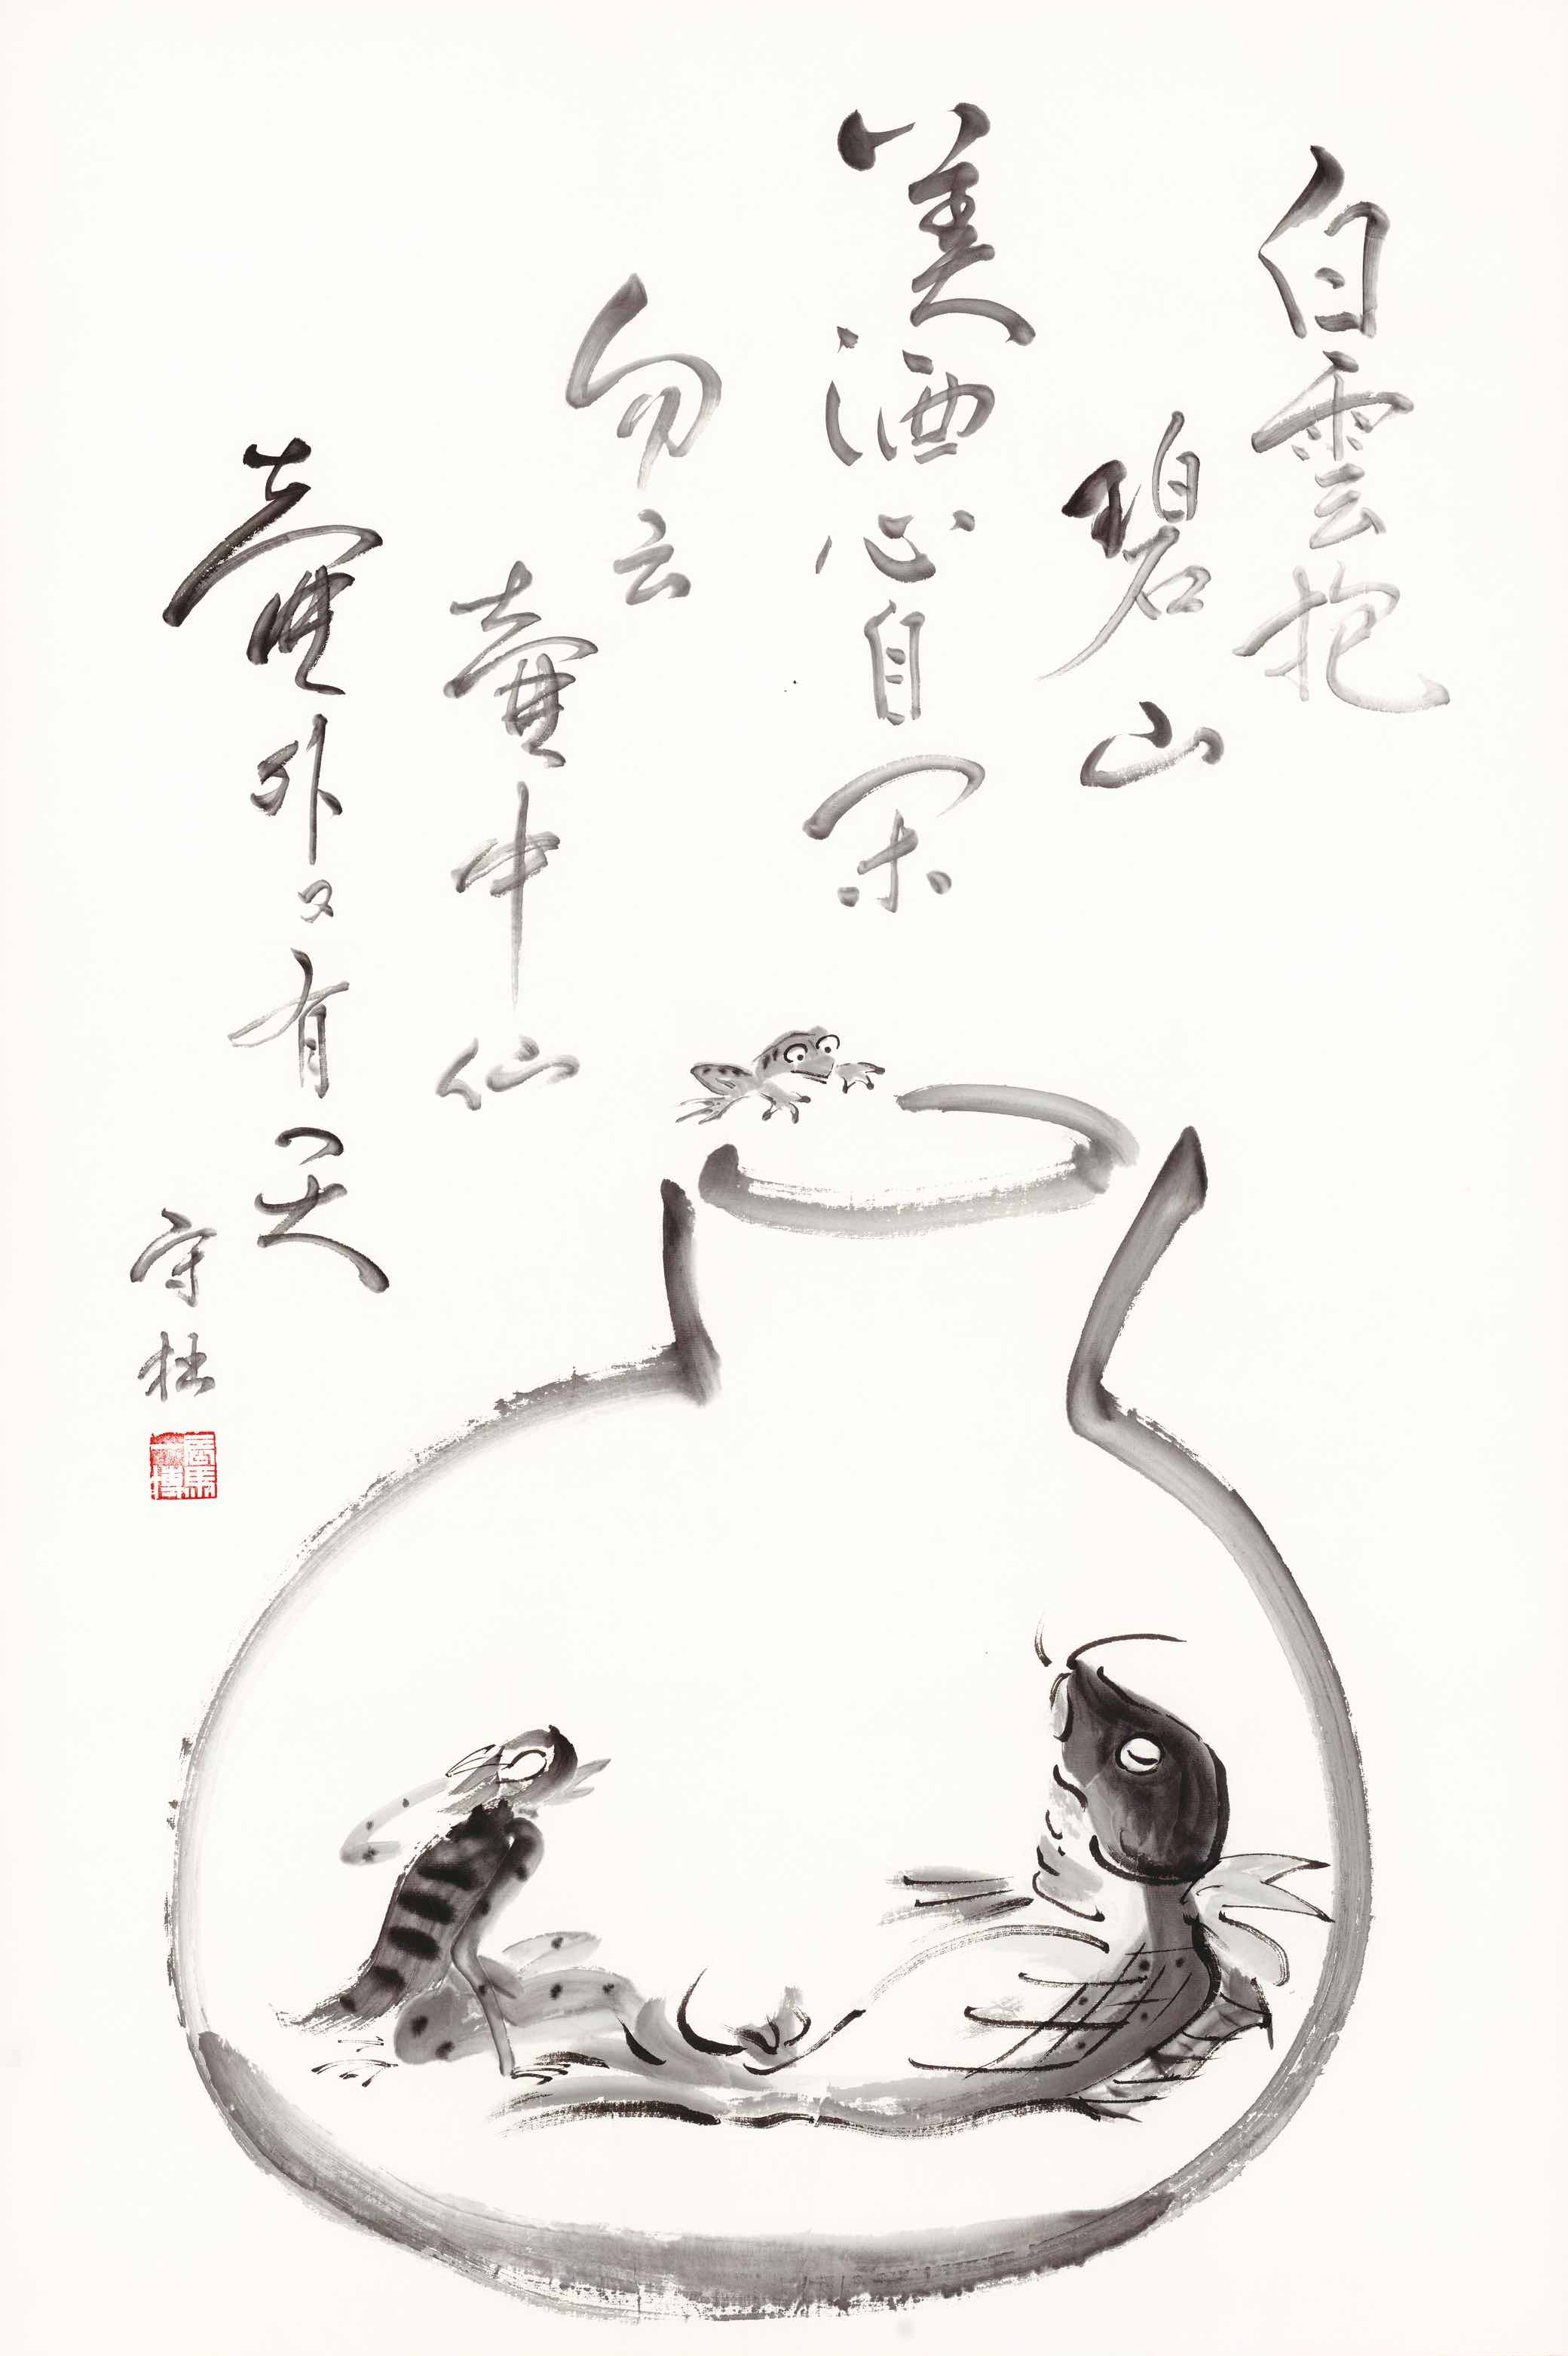 白雲抱
碧山
美酒心自閑
勿云
壺中仙
壺外又有天
守拙